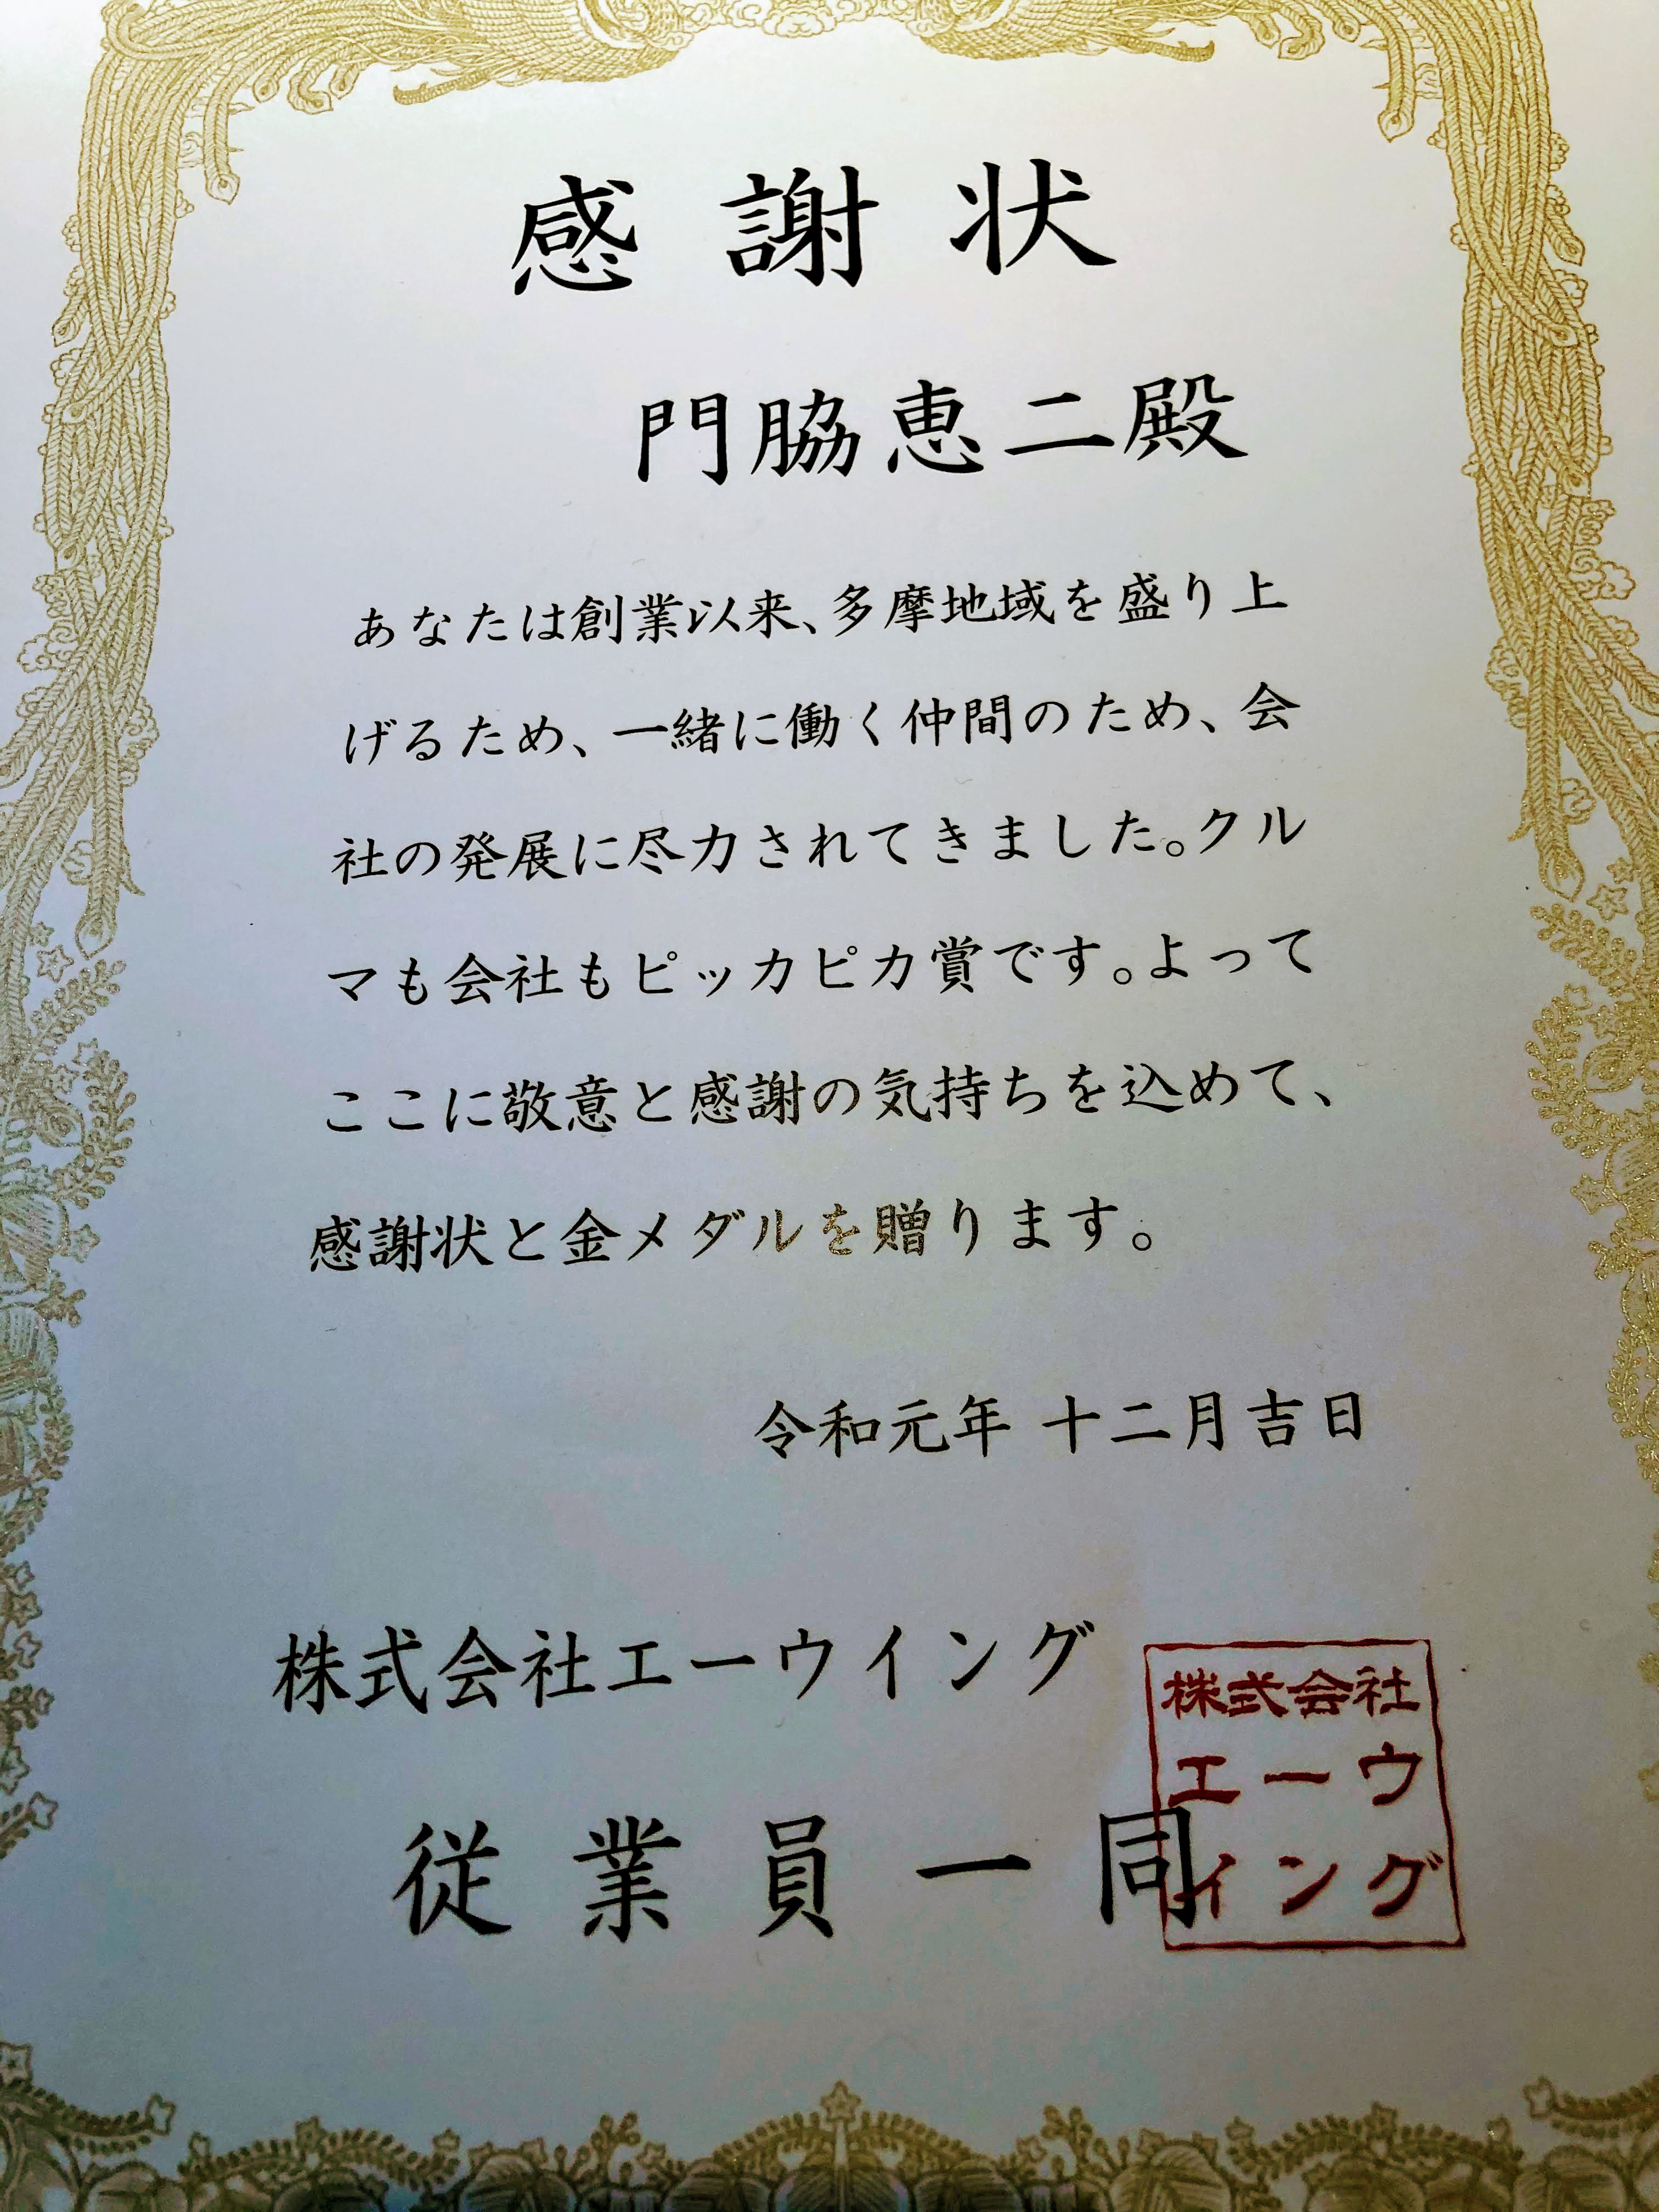 感謝状
門脇恵二殿
あなたは創業以来、多摩地域を盛り上
げるため、一緒に働く仲間のため、会
社の発展に尽力されてきました。クル
マも会社もピッカピカ賞です。よって
ここに敬意と感謝の気持ちを込めて、
感謝状と金メダルを贈ります。
令和元年 十二月吉日
株式会社エーウイング
従業員一同
株式会社
エーウ
イング